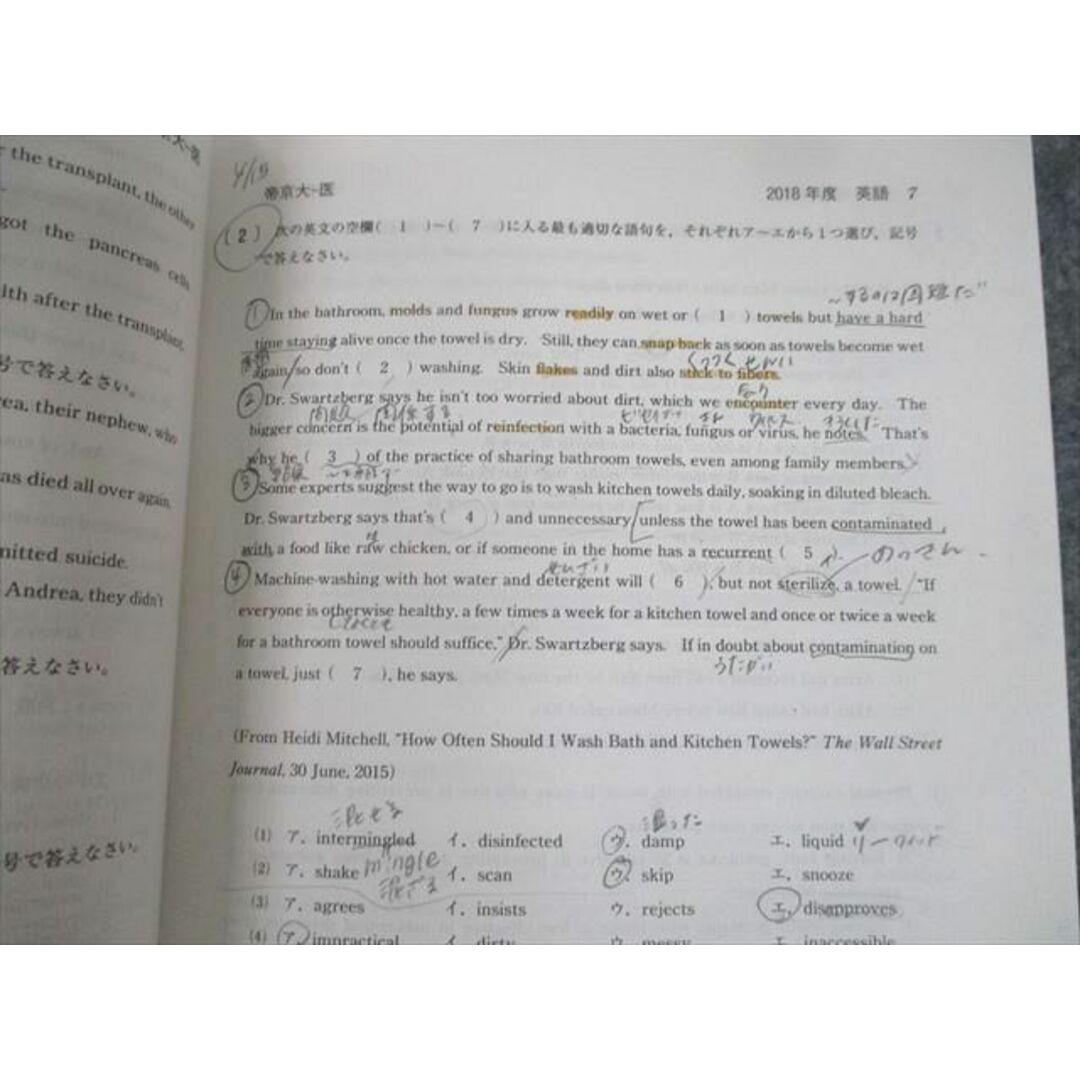 大-医
the transplant, the other
got the pancreas cells
ith after the transplant,
号で答えなさい。
ea, their nephew, who
as died all over again.
mitted suicide.
Andrea, they didn't
答えなさい。
号で答えなさい。
4/15
帝京大-医 2018年度 英語 7
(2) 次の英文の空欄( 1 )-( 7 )に入る最も適切な語句を、それぞれア-エから1つ選び、記号
で答えなさい。
①In the bathroom, molds and fungus grow readily on wet or ( 1 ) towels but have a hard
time staying alive once the towel is dry. Still, they can snap back as soon as towels become wet
again, so don't ( 2 ) washing. Skin flakes and dirt also stick to fibers.
②Dr. Swartzberg says he isn't too worried about dirt, which we encounter every day. The
関係する
bigger concern is the potential of reinfection with a bacteria, fungus or virus, he notes. That's
why he ( 3 ) of the practice of sharing bathroom towels, even among family members.
③Some experts suggest the way to go is to wash kitchen towels daily, soaking in diluted bleach.
Dr. Swartzberg says that's ( 4 ) and unnecessary unless the towel has been contaminated
with a food like raw chicken, or if someone in the home has a recurrent ( 5 ).
④Machine-washing with hot water and detergent will ( 6 ), but not sterilize, a towel. "If
everyone is otherwise healthy, a few times a week for a kitchen towel and once or twice a week
for a bathroom towel should suffice," Dr. Swartzberg says. If in doubt about contamination on
うたがい
a towel, just ( 7 ), he says.
(From Heidi Mitchell, "How Often Should I Wash Bath and Kitchen Towels?" The Wall Street
Journal, 30 June, 2015)
混ぜる 湿った
(1) ア. intermingled イ. disinfected ウ. damp エ. liquid
mingle
(2) ア. shake イ. scan ウ. skip エ. snooze
混ぜる
(3) ア. agrees イ. insists ウ. rejects エ. disapproves
(4) ア. impractical イ. dirty ウ. messy エ. inaccessible